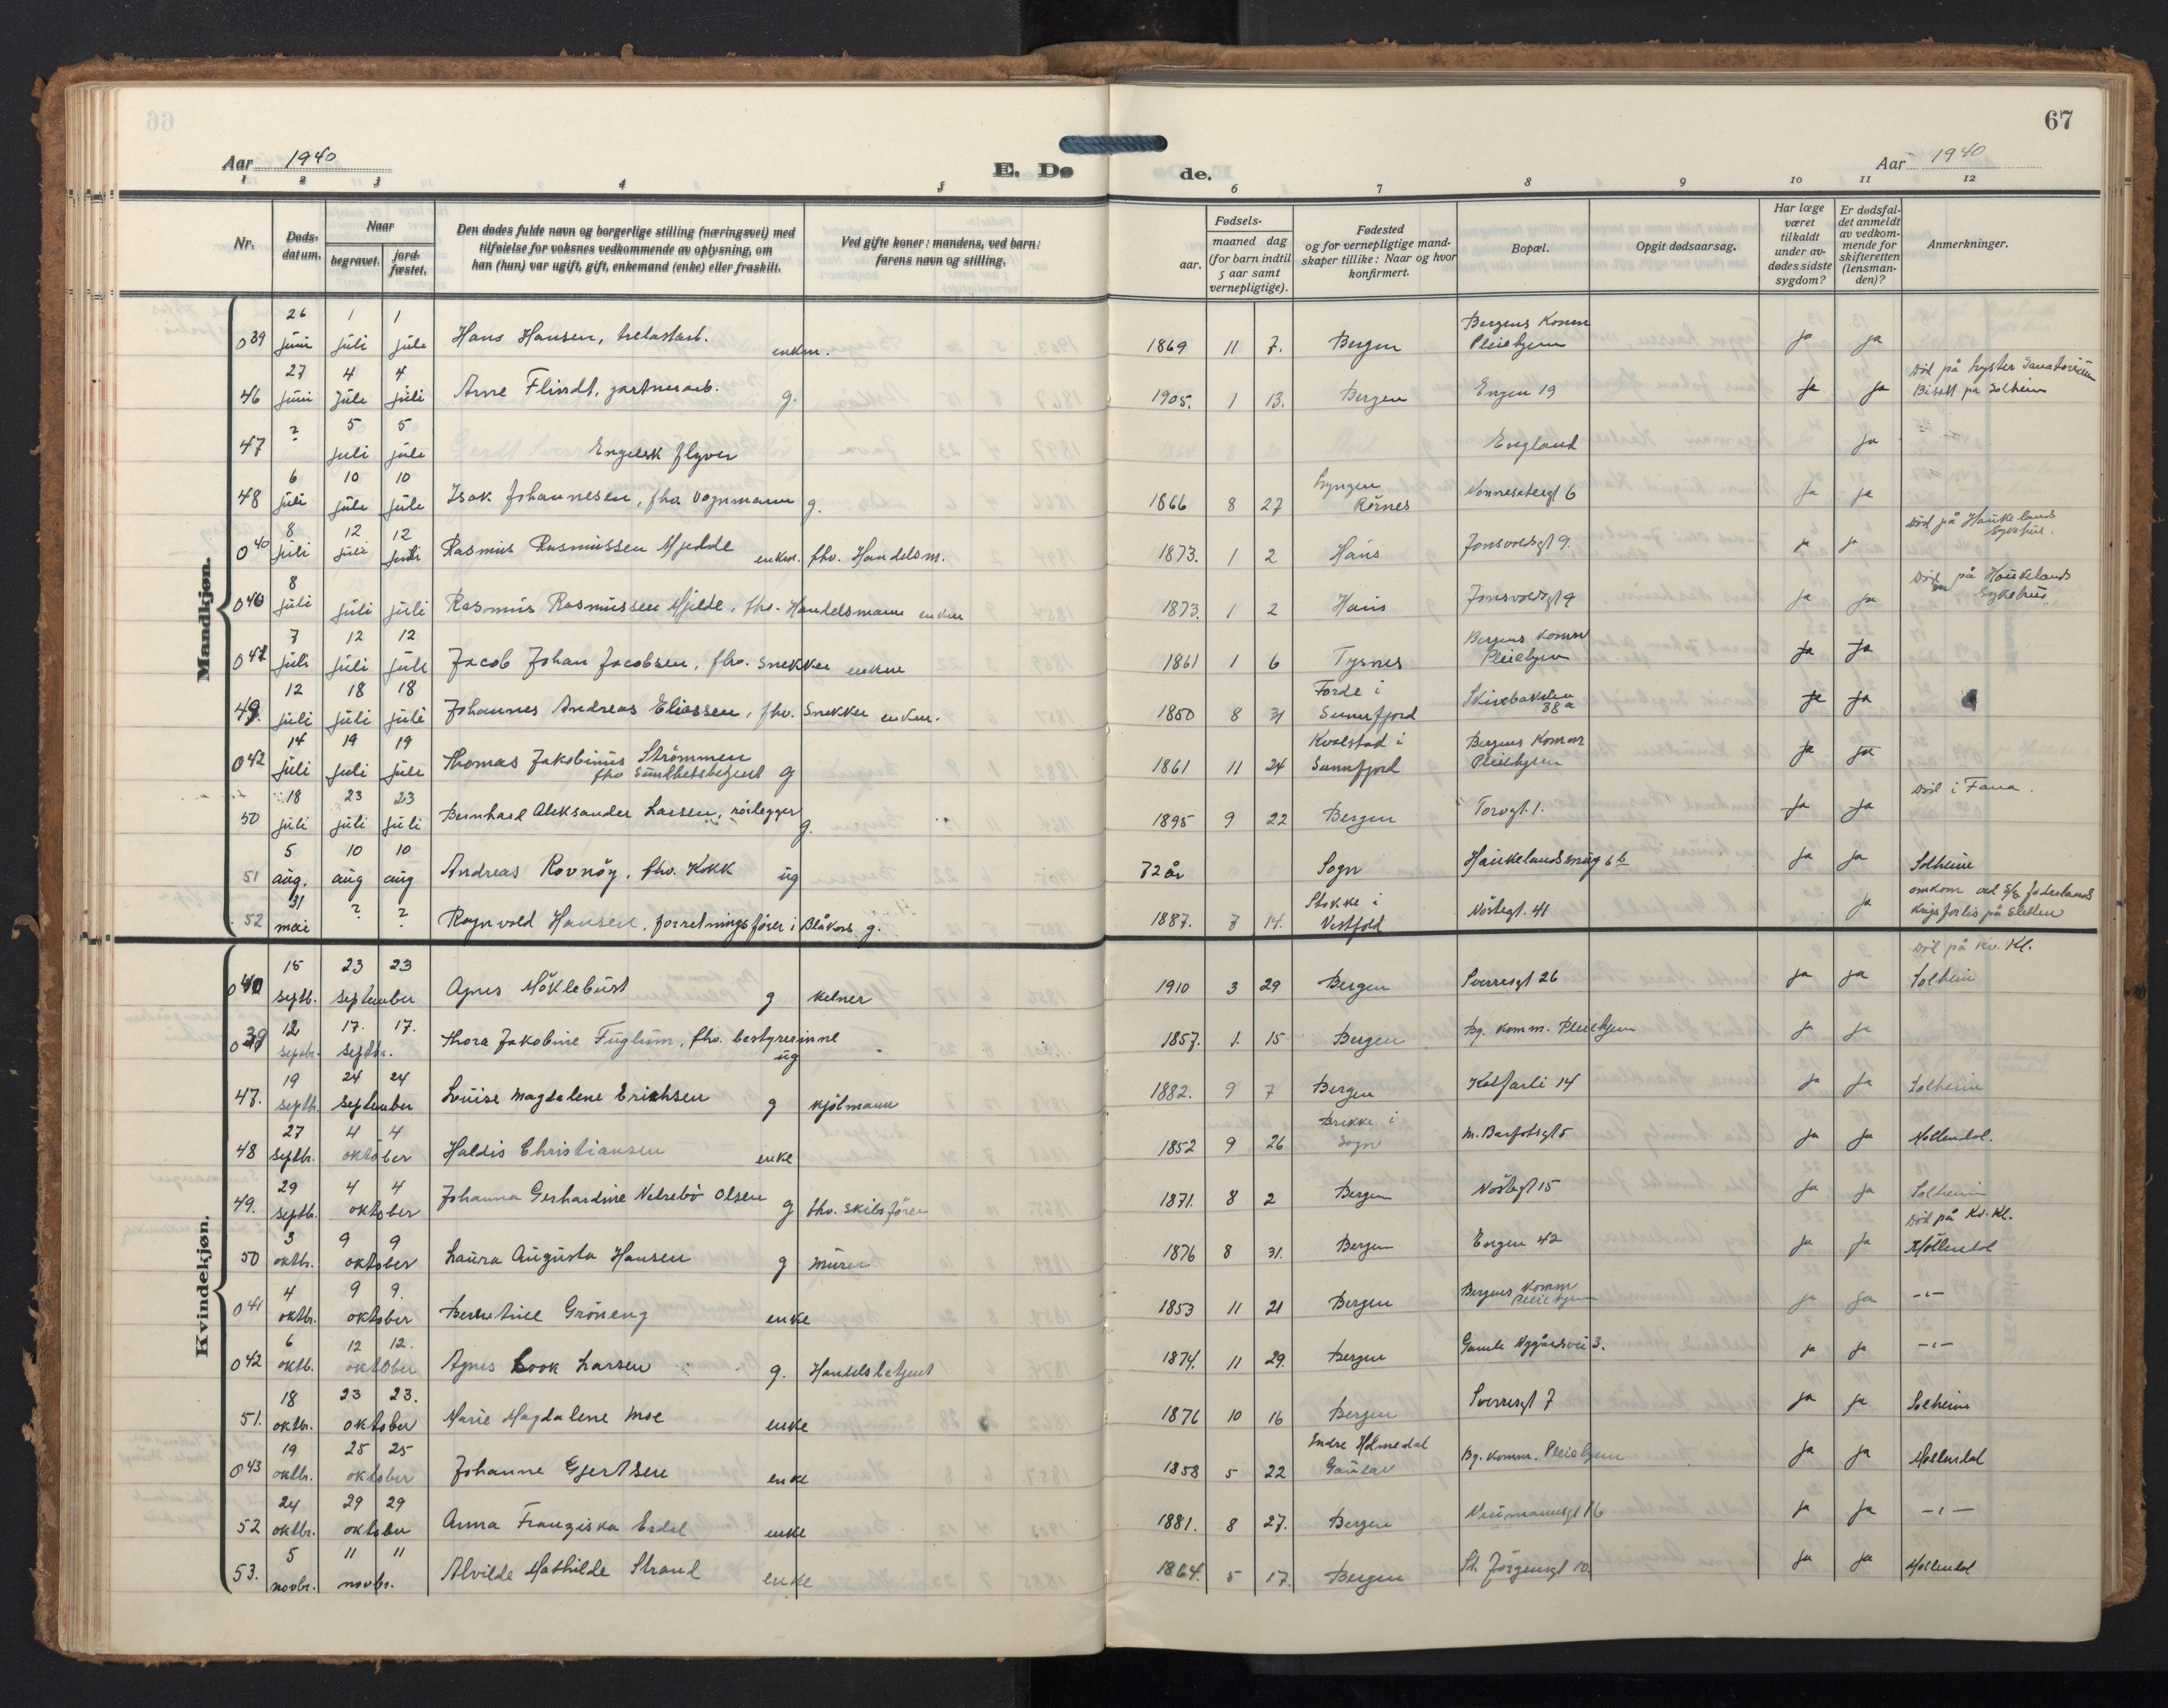 67
Aar 1940
E. Dø
de.
Aar 1940
1 2 3 4 5 6 7 8 9 10 11 12
Nr.
Døds-datum.
Naar
begravet.
jord-fæstet.
Den dødes fulde navn og borgerlige stilling (næringsvei) med
tilføielse for voksnes vedkommende av oplysning, om
han (hun) var ugift, gift, enkemand (enke) eller fraskilt.
Ved gifte koner: mandens, ved barn:
farens navn og stilling.
Fødsels-
aar.
maaned dag
(for barn indtil
5 aar samt
vernepligtige).
Fødested
og for vernepligtige mand-
skaper tillike: Naar og hvor
konfirmert.
Bopæl.
Opgit dødsaarsag.
Har læge
været
tilkaldt
under av-
dødes sidste
sygdom?
Er dødsfal-
det anmeldt
av vedkom-
mende for
skifteretten
(lensman-
den)?
Anmerkninger.
Mandkjøn.
0 39 26 juni 1 juli 1 juli Hans Hansen, trelastarb. enkm. 1869 11 7. Bergen Bergens Komm Pleiehjem ja ja
46 27 juni 4 juli 4 juli Arne Flindt, gartnerarb. g. 1905. 1 13. Bergen Engen 19 ja ja Død på Lyster Sanatorium Bisatt på Solheim
47 ? 5 juli 5 juli Engelsk flyver England ja
48 6 juli 10 juli 10 juli Isak Johannesen, fhv. vognmann g. 1866 8 27 Lyngen Rörnes Nonnesetergt 6 ja ja
0 40 8 juli 12 juli 12 juli Rasmus Rasmussen Mjelde enkm. fhv. Handelsm. 1873. 1 2 Haus Jonsvoldsgt 9. ja ja Död på Haukelands Sykehus.
0 40 8 juli juli juli Rasmus Rasmussen Mjelde, fhv. Handelsmann enkm 1873. 1 2 Haus Jonsvoldsgt 9 ja ja Död på Haukelands Sykehus.
0 41 7 juli 12 juli 12 juli Jacob Johan Jacobsen, fhv. Snekker enkm 1861 1 6 Tysnes Bergens Komm Pleiehjem ja ja
49. 12 juli 18 juli 18 juli Johannes Andreas Eliassen, fhv. Snekker enkm. 1850 8 31 Förde i Sunnfjord Skivebakken 38a ja ja
0 42 14 juli 19 juli 19 juli Thomas Jakobinus Strömmen fhv Sundhetsbetjent g 1861 11 24 Kvalstad i Sunnfjord Bergens Komm Pleiehjem ja ja
50 18 juli 23 juli 23 juli Bernhard Aleksander Larsen, rörlegger g. 1895 9 22 Bergen Torvgt. 1. ja ja Död i Fana.
51 5 aug. 10 aug 10 aug Andreas Rovnöy, fhv. Kokk ug 72 år Sogn Haukelandssmug 6 b ja ja Solheim
52 31 mai ? ? Ragnvald Hansen, forretningsfører i Blåkors g. 1887. 7 14. Stokke i Vestfold Nöstegt. 41 ja omkom ved S/S Faderlands Krigsforlis på Sletten
Kvindekjøn.
0 40 15 septb. 23 23 september Agnes Möklebust g kelner 1910 3 29 Bergen Sverresgt 26 ja ja Död på Kv. Kl. Solheim
0 39 12 septbr. 17. 17. septbr. Thora Jakobine Fuglum, fhv. bestyrerinne ug 1857. 1. 15 Bergen Bg. Komm. Pleiehjem ja ja
47. 19 septb. 24 24 september Louise Magdalene Erichsen g kjölmann 1882. 9 7 Bergen Kalfarli 14 ja ja Solheim
48 27 septbr. 4 4 oktober Haldis Christiansen enke 1852 9 26 Brekke i Sogn M. Barfotsgt 5 ja ja Möllendal.
49. 29 septb. 4 4 oktober Johanna Gerhardine Netrebö Olsen g fhv. skibsförer 1871. 8 2 Bergen Nöstegt 15 ja ja Solheim
50 3 oktb. 9 9 oktober Laura Augusta Hansen g murer 1876 8 31. Bergen Engen 42 ja ja Död på Kv. Kl. Möllendal
0 41 4 oktbr. 9 9. oktober Berntine Gröneng enke 1853 11 21 Bergen Bergens Komm Pleiehjem ja ja -"-
0 42 6 oktb. 12 12. oktober Agnes Cook Larsen g. Handelsbetjent 1874. 11 29. Bergen Gamle Nygårdsvei 3. ja ja -"-
51. 18 oktbr. 23 23. oktober Marie Magdalene Moe enke 1876 10 16 Bergen Sverresgt 7 ja ja Solheim
0 43 19 oktbr. 25 25 oktober Johanne Gjertsen enke 1858 5 22 Indre Holmedal Gaular Bg. Komm. Pleiehjem ja ja Möllendal
52 24 oktbr. 29 29 oktober Anna Franziska Erdal enke 1881. 8 27. Bergen Neumannsgt 16 ja ja -"-
53. 5 novbr. 11 11 novbr. Alvilde Mathilde Strand enke 1864. 5 17. Bergen St. Jörgensgt 10 ja ja Möllendal